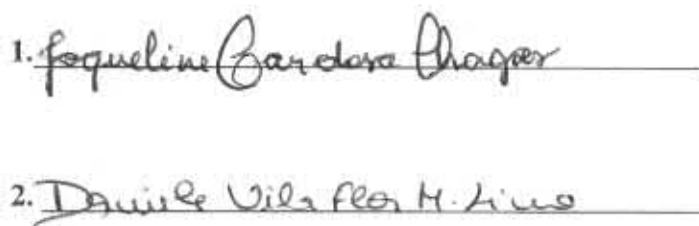 1. Joqueline Cardoso Chagas
2. Daniele Vila Flor M. Lino